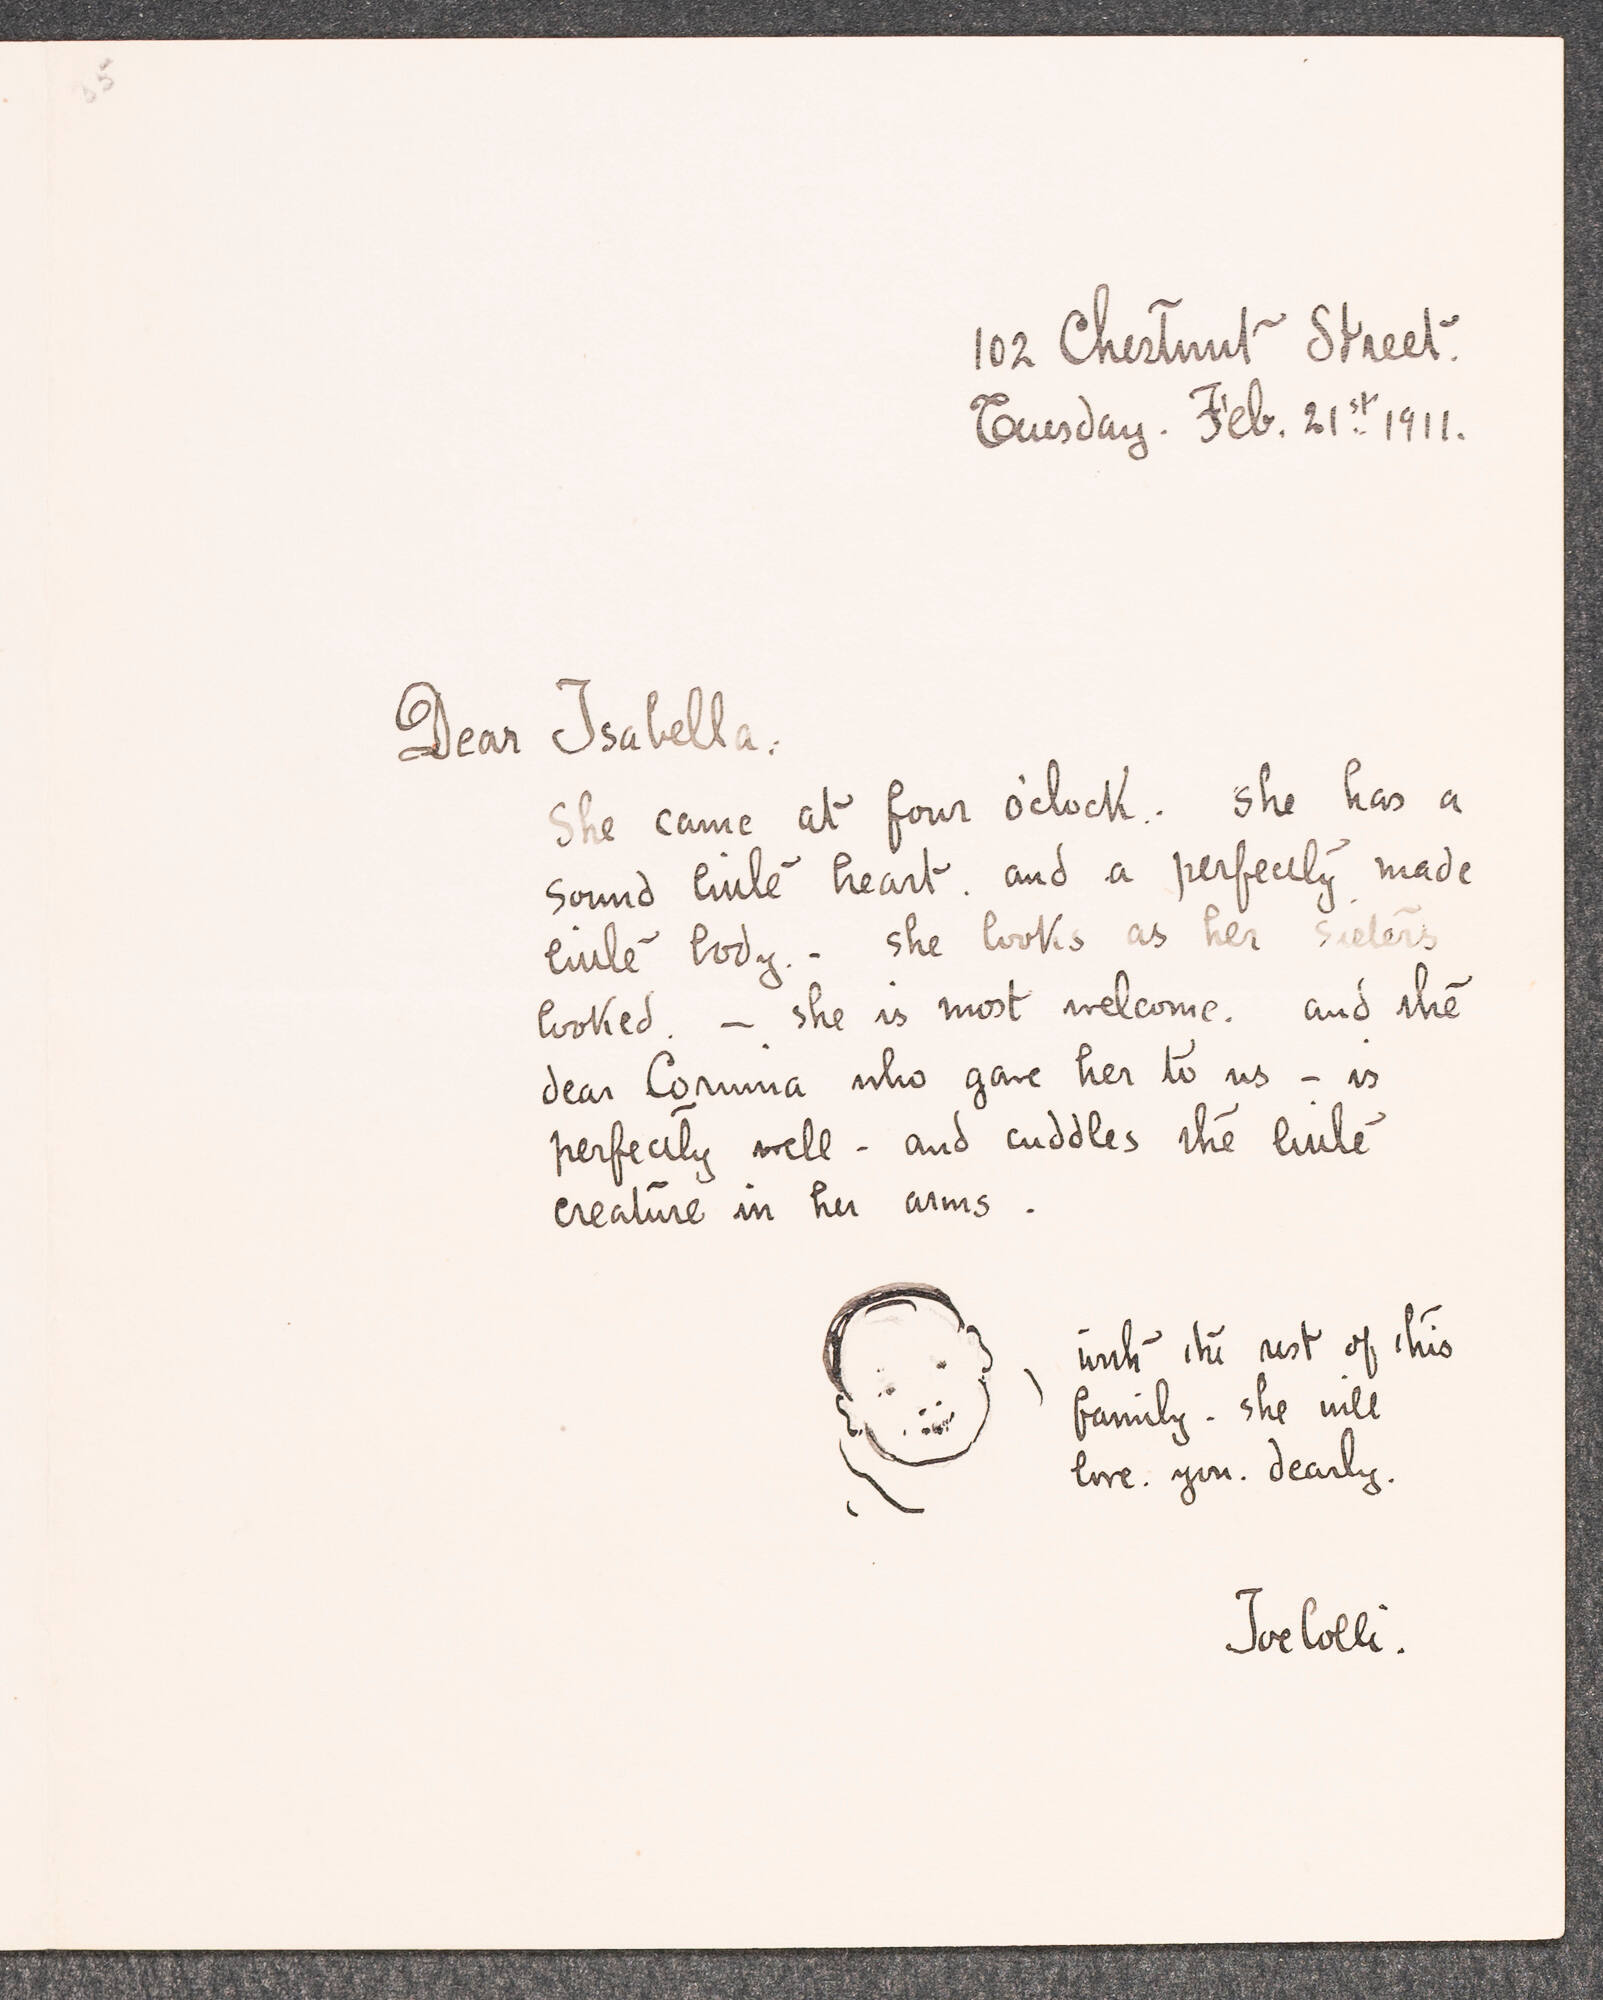 35
102 Chestnut Street.
Tuesday. Feb. 21st. 1911.
Dear Isabella.
She came at four o'clock.. she has a
sound little heart. and a perfectly made
little body. - she looks as her sisters
looked. - she is most welcome. and the
dear Corinna who gave her to us - is
perfectly well - and cuddles the little
creature in her arms.
with the rest of this
family - she will
love. you. dearly.